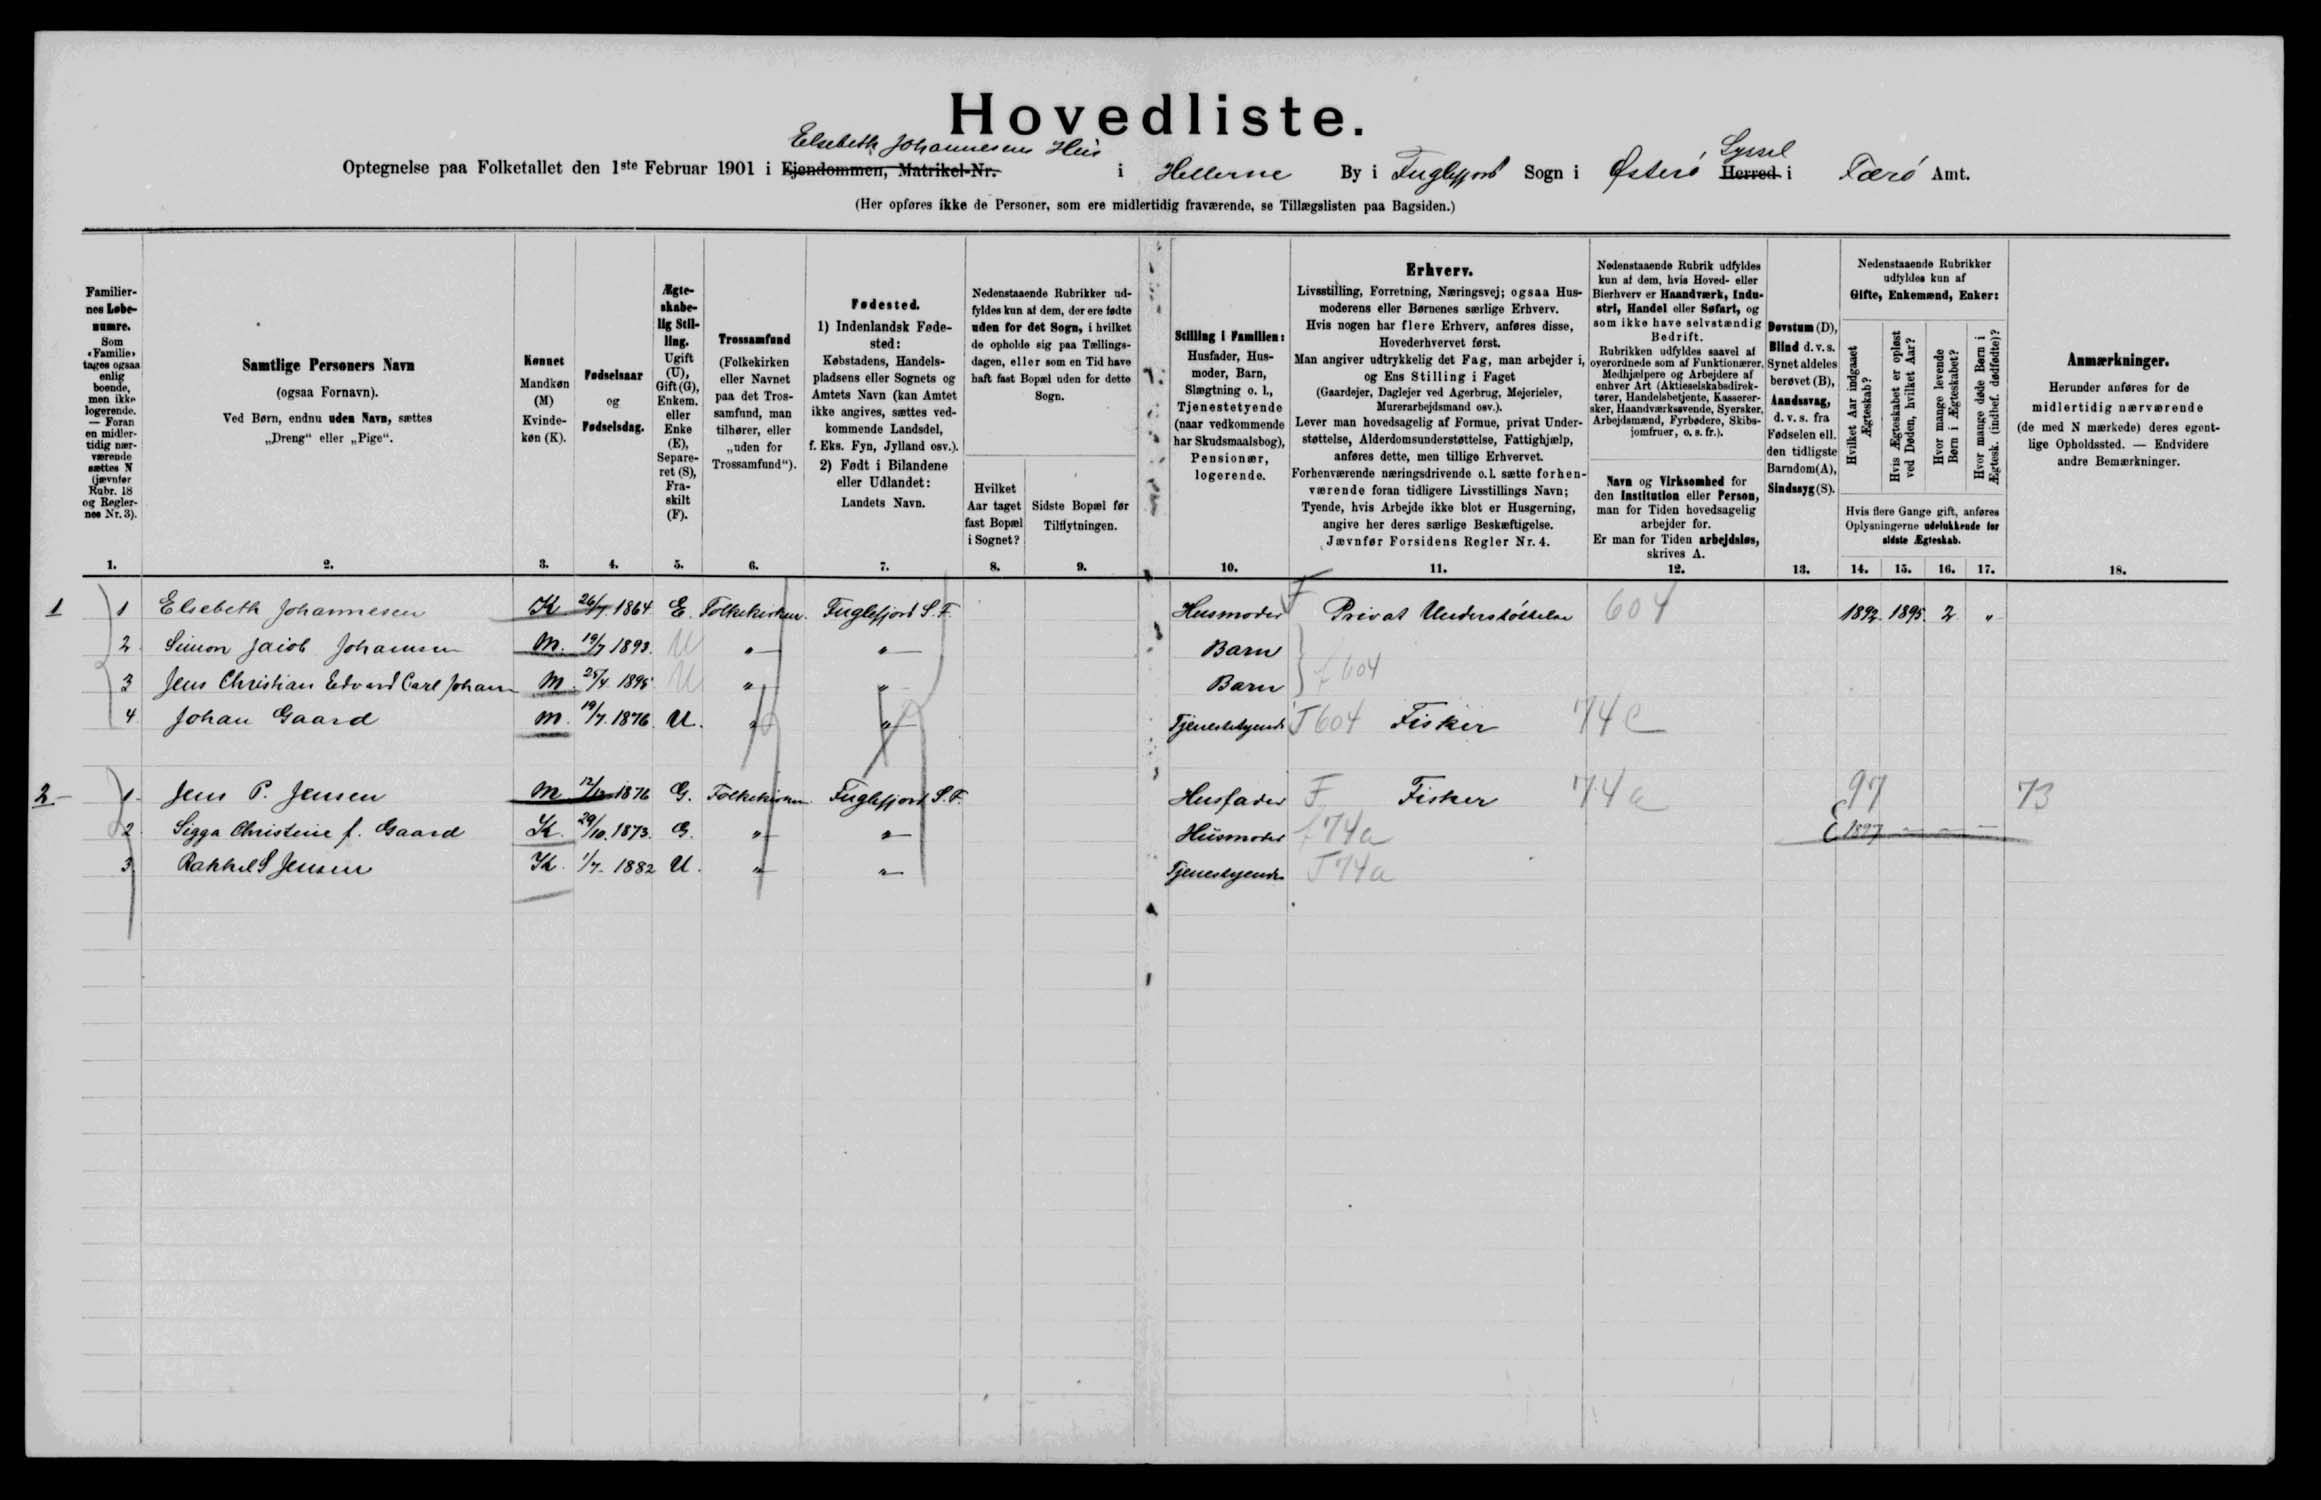 Hovedliste.
Elsebeth Johannesens Hus
Optegnelse paa Folketallet den 1ste Februar 1901 i Ejendommen, Matrikel-Nr. i Hellerne By i Fuglefjord Sogn i Østerö Herred Syssel i Færö Amt.
(Her opføres ikke de Personer, som ere midlertidig fraværende, se Tillægslisten paa Bagsiden.)
Familiernes Løbenumre.
Som «Familie» tages ogsaa enlig boende, men ikke logerende. — Foran en midlertidig nærværende sættes N (jævnfør Rubr. 18 og Reglernes Nr. 3).
Samtlige Personers Navn
(ogsaa Fornavn).
Ved Børn, endnu uden Navn, sættes
„Dreng“ eller „Pige“.
Kønnet
Mandkøn (M)
Kvindekøn (K).
Fødselsaar
og
Fødselsdag.
Ægteskabelig Stilling.
Ugift (U), Gift (G), Enkem. eller Enke (E), Separeret (S), Fraskilt (F).
Trossamfund
(Folkekirken eller Navnet paa det Trossamfund, man tilhører, eller „uden for Trossamfund“).
Fødested.
1) Indenlandsk Fødested:
Købstadens, Handelspladsens eller Sognets og Amtets Navn (kan Amtet ikke angives, sættes vedkommende Landsdel, f. Eks. Fyn, Jylland osv.).
2) Født i Bilandene eller Udlandet:
Landets Navn.
Nedenstaaende Rubrikker udfyldes kun af dem, der ere fødte uden for det Sogn, i hvilket de opholde sig paa Tællingsdagen, eller som en Tid have haft fast Bopæl uden for dette Sogn.
Hvilket Aar taget fast Bopæl i Sognet?
Sidste Bopæl før Tilflytningen.
Stilling i Familien:
Husfader, Husmoder, Barn, Slægtning o. l., Tjenestetyende (naar vedkommende har Skudsmaalsbog), Pensionær, logerende.
Erhverv.
Livsstilling, Forretning, Næringsvej; ogsaa Husmoderens eller Børnenes særlige Erhverv.
Hvis nogen har flere Erhverv, anføres disse, Hovederhvervet først.
Man angiver udtrykkelig det Fag, man arbejder i, og Ens Stilling i Faget
(Gaardejer, Daglejer ved Agerbrug, Mejerielev, Murerarbejdsmand osv.).
Lever man hovedsagelig af Formue, privat Understøttelse, Alderdomsunderstøttelse, Fattighjælp, anføres dette, men tillige Erhvervet.
Forhenværende næringsdrivende o. l. sætte forhenværende foran tidligere Livsstillings Navn;
Tyende, hvis Arbejde ikke blot er Husgerning, angive her deres særlige Beskæftigelse.
Jævnfør Forsidens Regler Nr. 4.
Nedenstaaende Rubrik udfyldes kun af dem, hvis Hoved- eller Bierhverv er Haandværk, Industri, Handel eller Søfart, og som ikke have selvstændig Bedrift.
Rubrikken udfyldes saavel af overordnede som af Funktionærer, Medhjælpere og Arbejdere af enhver Art (Aktieselskabsdirektører, Handelsbetjente, Kassererer­sker, Haandværkssvende, Syersker, Arbejdsmænd, Fyrbødere, Skibsjomfruer, o. s. fr.).
Navn og Virksomhed for den Institution eller Person, man for Tiden hovedsagelig arbejder for.
Er man for Tiden arbejdsløs, skrives A.
Døvstum (D), Blind d. v. s. Synet aldeles berøvet (B), Aandssvag, d. v. s. fra Fødselen ell. den tidligste Barndom (A), Sindssyg (S).
Nedenstaaende Rubrikker udfyldes kun af
Gifte, Enkemænd, Enker:
Hvilket Aar indgaaet Ægteskab?
Hvis Ægteskabet er opløst ved Døden, hvilket Aar?
Hvor mange levende Børn i Ægteskabet?
Hvor mange døde Børn i Ægtesk. (indbef. dødfødte)?
Hvis flere Gange gift, anføres Oplysningerne udelukkende for sidste Ægteskab.
Anmærkninger.
Herunder anføres for de midlertidig nærværende (de med N mærkede) deres egentlige Opholdssted. — Endvidere andre Bemærkninger.
1. 2. 3. 4. 5. 6. 7. 8. 9. 10. 11. 12. 13. 14. 15. 16. 17. 18.
1 1 Elsebeth Johannesen K 26/7 1864 E. Folkekirken. Fuglefjord S. F. Husmoder F Privat Understöttelse 604 1892. 1895. 2 "
2 Simon Jacob Johannesen M. 19/7 1893. U " " Barn
3 Jens Christian Edvard Carl Johann M. 25/4 1895 U " " Barn f 604
4 Johan Gaard M. 19/7. 1876. U. " " Tjenestetyende T 604 Fisker 74 c
2 1 Jens P. Jensen M 12/12 1876 G. Folkekirken Fuglefjord S. F. Husfader F Fisker 74 a 97 73
2 Sigga Christine f. Gaard K. 29/10. 1873. G. " " Husmoder f 74a E 1897 — — —
3 Rakkel S Jensen K. 1/7. 1882 U. " " Tjenestyende T 74a